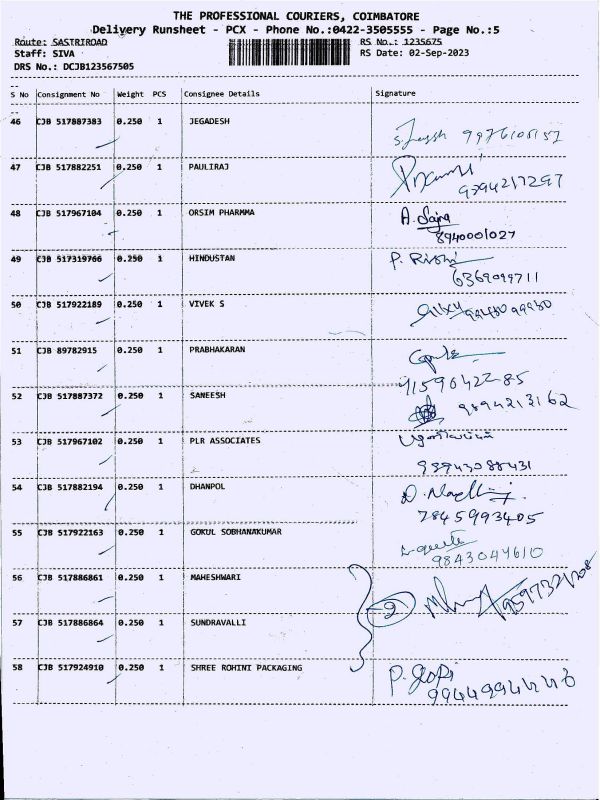 THE PROFESSIONAL COURIERS, COIMBATORE
Delivery Runsheet - PCX - Phone No.:0422-3505555 - Page No.:5
Route: SASTRIROAD RS No.: 1235675
Staff: SIVA RS Date: 02-Sep-2023
DRS No.: DCJB123567505
S No Consignment No Weight PCS Consignee Details Signature
46 CJB 517887383 0.250 1 JEGADESH
47 CJB 517882251 0.250 1 PAULIRAJ
9794217297
48 CJB 517967104 0.250 1 ORSIM PHARMMA A. Sajna
8940001027
49 CJB 517319766 0.250 1 HINDUSTAN P. Rishi
6369099711
50 CJB 517922189 0.250 1 VIVEK S
51 CJB 89782915 0.250 1 PRABHAKARAN
9159042285
52 CJB 517887372 0.250 1 SANEESH 9894213162
53 CJB 517967102 0.250 1 PLR ASSOCIATES
98943088431
54 CJB 517882194 0.250 1 DHANPOL
7845993405
55 CJB 517922163 0.250 1 GOKUL SOBHANAKUMAR
9843047610
56 CJB 517886861 0.250 1 MAHESHWARI
57 CJB 517886864 0.250 1 SUNDRAVALLI
58 CJB 517924910 0.250 1 SHREE ROHINI PACKAGING P. Gopi